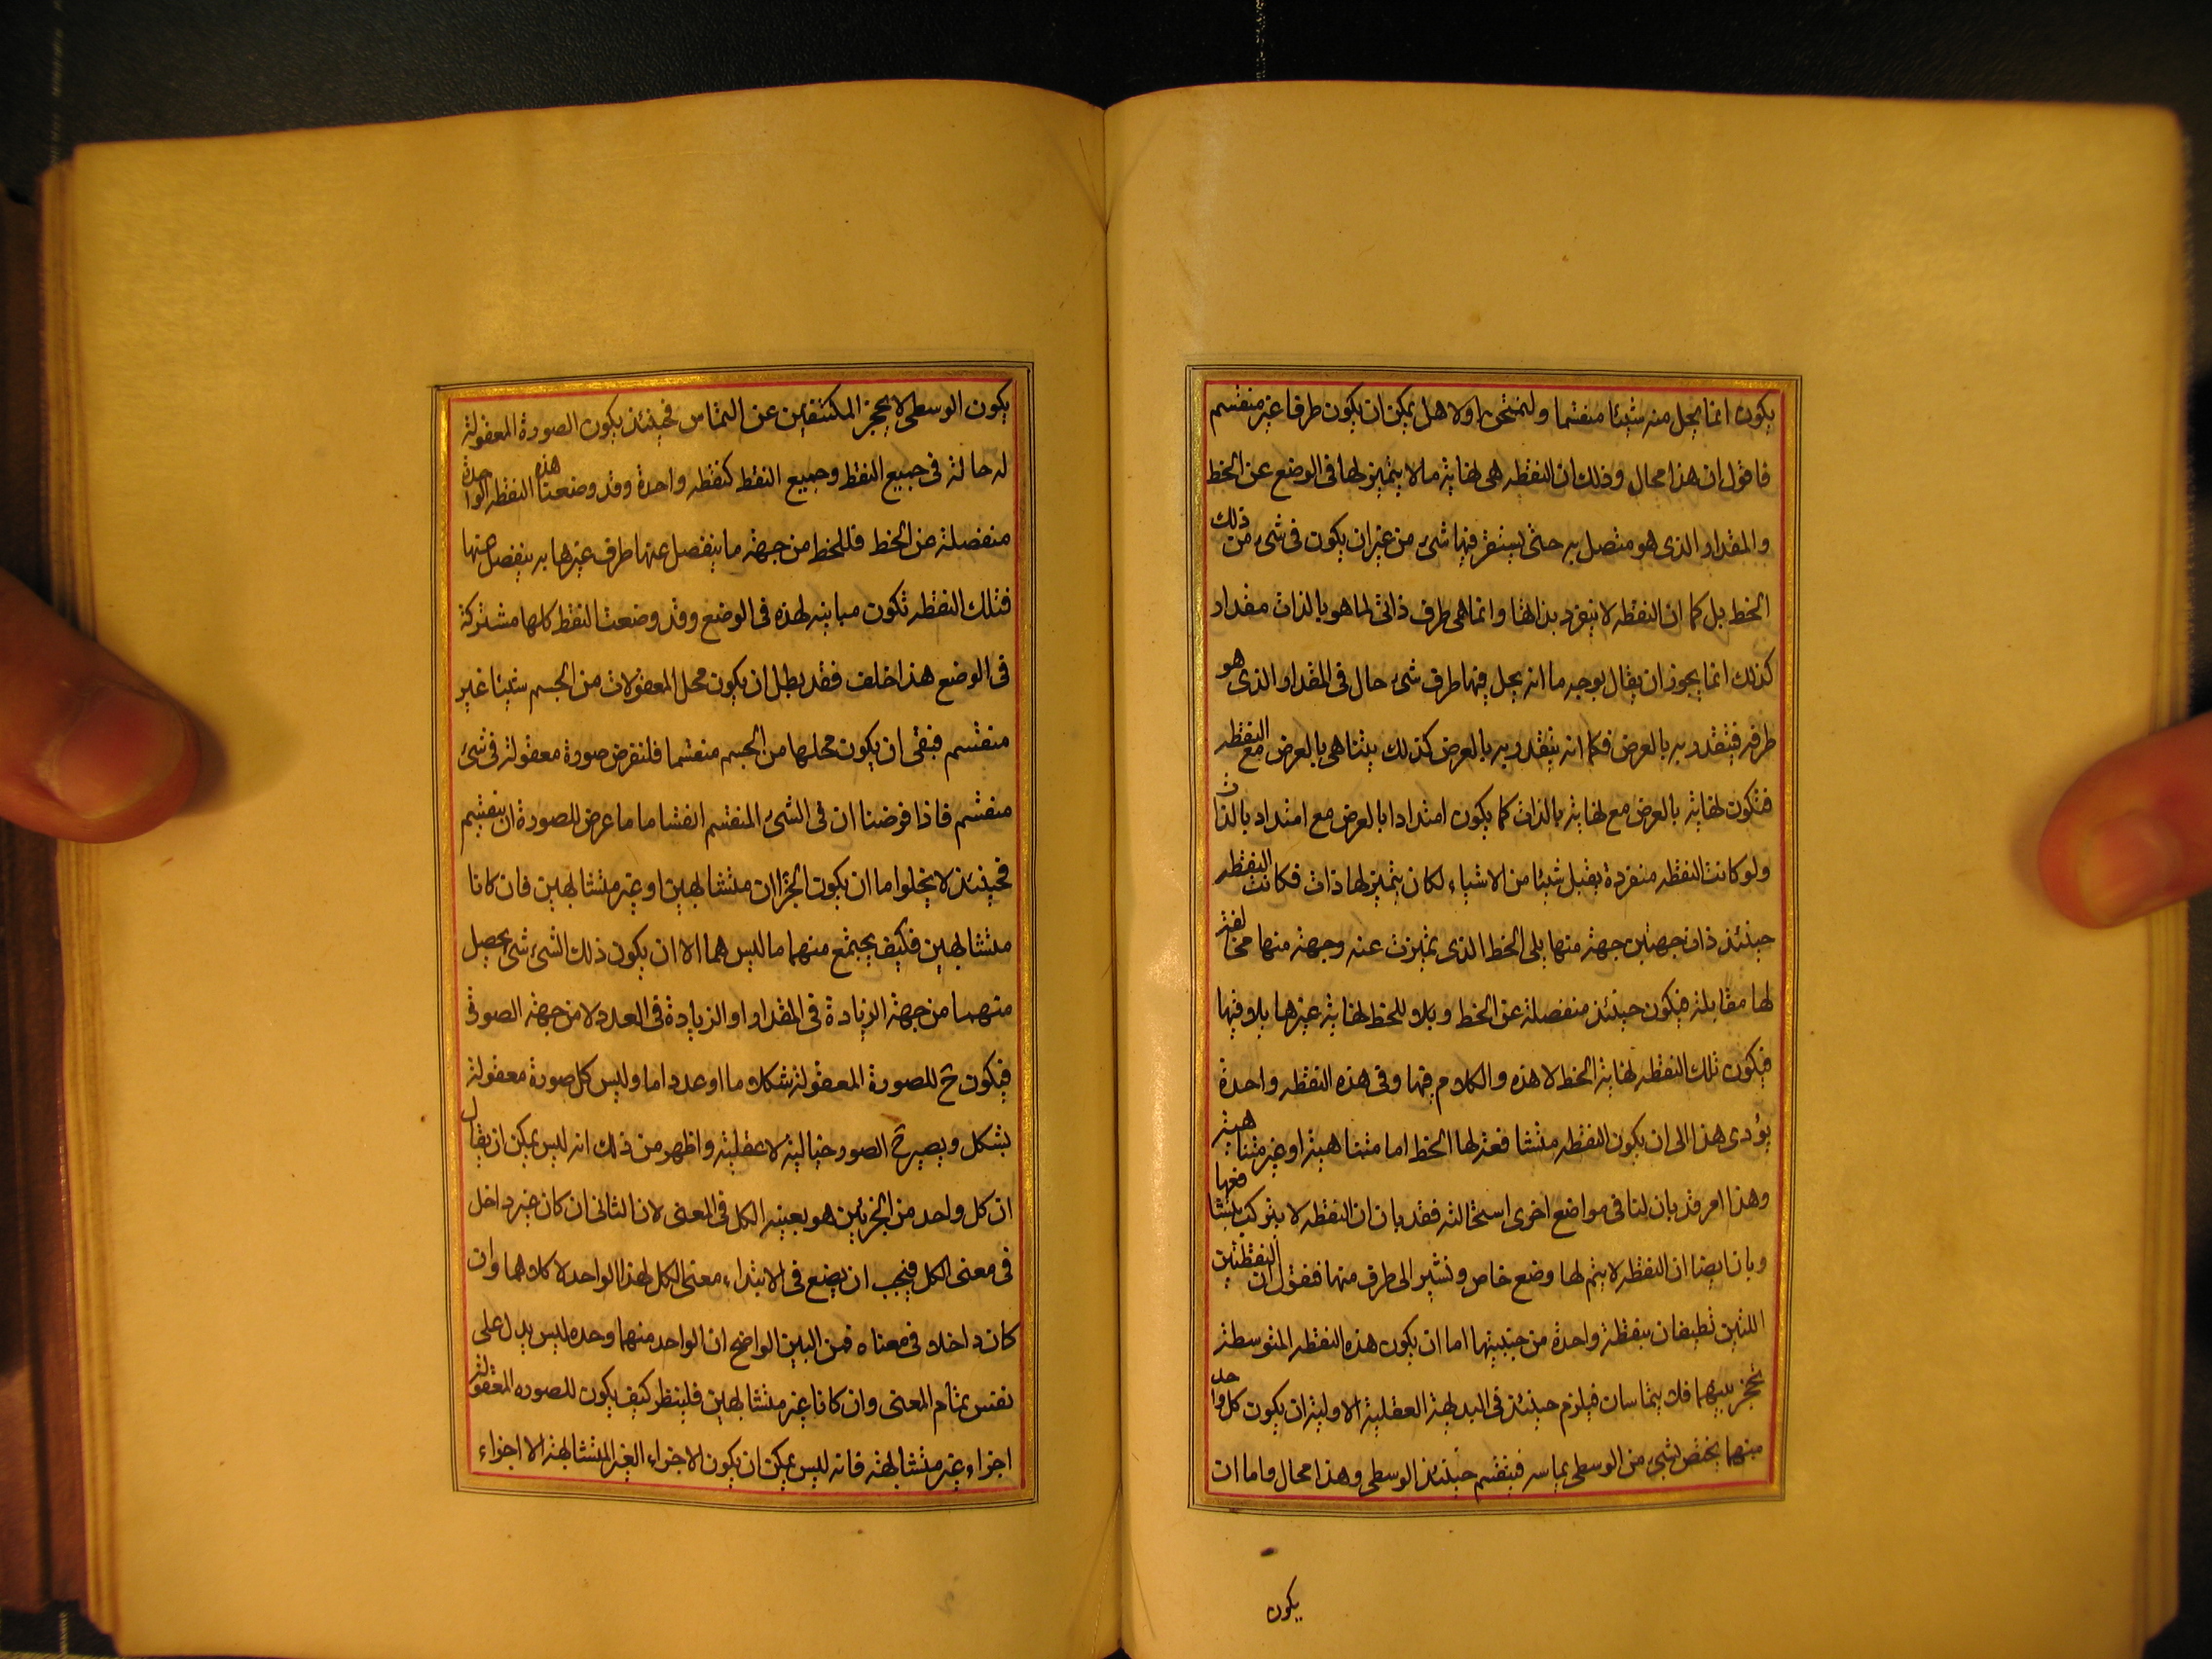 يكون انما يحل منه شيئا منقسما ولنمتحن اولا هل يمكن ان يكون طرفا غير منقسم
فاقول ان هذا محال وذلك ان النقطه هى نهاية ما لا يتميز لها فى الوضع عن الخط
والمقدار الذى هو متصل به حتى يستقر فيها شىء من غير ان يكون فى شىء من ذلك
الخط بل كما ان النقطه لا ينفرد بذاتها وانما هى طرف ذاتى لما هو بالذات مقدار
كذلك انما يجوز ان يقال بوجه ما انه يحل فيها طرف شىء حال فى المقدار الذى هو
طرفه فيتقدر به بالعرض فكما انه يتقدر به بالعرض كذلك يتناهى بالعرض مع النقطه
فتكون نهاية بالعرض مع نهاية بالذات كما يكون امتدادا بالعرض مع امتداد بالذات
ولو كانت النقطه منفردة يقبل شيئا من الاشياء لكان يتميز لها ذات فكانت النقطه
حينئذ ذات جهتين جهة منها يلى الخط الذى تميزت عنه وجهة منها مخالفة
لها مقابلة فيكون حينئذ منفصلة عن الخط و للخط نهاية غيرها فيها
فيكون تلك النقطه نهاية الخط لا هذه والكلام فيها وفى هذه النقطه واحدة
يؤدى هذا الى ان يكون النقطه متشافعة لها الخط اما متناهية او غير متناهية
وهذا امر قد بان لنا فى مواضع اخرى استحالته فقد بان ان النقطه لا يتركب بتشافعها
وبان ايضا ان النقطه لا يتم لها وضع خاص ونشير الى طرف منها فنقول ان النقطتين
اللتين تطيفان بنقطة واحدة من جنبيتها اما ان يكون هذه النقطه المتوسطة
تحجز بينهما فلا يتماسان فيلزم حينئذ فى البديهة العقلية الاولية ان يكون كل واحد
منهما يختص بشىء من الوسطى يماسه فينقسم حينئذ الوسطى وهذا محال واما ان
يكون
يكون الوسطى لا يحجز المكتنفين عن التماس فحينئذ يكون الصورة المعقولة
له حالة فى جميع النقط وجميع النقط كنقطه واحدة وقد وضعنا هذه النقطه الواحدة
منفصلة عن الخط فللخط من جهة ما ينفصل عنها طرف غيرها به ينفصل عنها
فتلك النقطه تكون مباينه لهذه فى الوضع وقد وضعت النقط كلها مشتركة
فى الوضع هذا خلف فقد بطل ان يكون محل المعقولات من الجسم شيئا غير
منقسم فبقى ان يكون محلها من الجسم منقسما فلنفرض صورة معقولة فى شىء
منقسم فاذا فرضنا ان فى الشىء المنقسم انقساما ما عرض للصورة ان ينقسم
فحينئذ لا يخلوا ما ان يكون الجزاان متشابهين او غير متشابهين فان كانا
متشابهين فكيف يجتمع منهما ما ليس هما الا ان يكون ذلك الشىء شىء يحصل
منهما من جهة الزيادة فى المقدار او الزيادة فى العدد لا من جهة الصورة
فيكون ح للصورة المعقولة شكلا ما او عددا ما وليس كل صورة معقولة
بشكل ويصير ح الصور خيالية لا عقلية واظهر من ذلك انه ليس يمكن ان يقال
ان كل واحد من الجزئين هو بعينه الكل فى المعنى لان الثانى ان كان غير داخل
فى معنى الكل فيجب ان يضع فى الابتداء معنى الكل لهذا الواحد لا كلاهما وان
كان داخلا فى معناه فمن البين الواضح ان الواحد منهما وحده ليس يدل على
نفس تمام المعنى وان كانا غير متشابهين فلينظر كيف يكون للصوره المعقولة
اجزاء غير متشابهة فانه ليس يمكن ان يكون الاجزاء الغير المتشابهة الا اجزاء